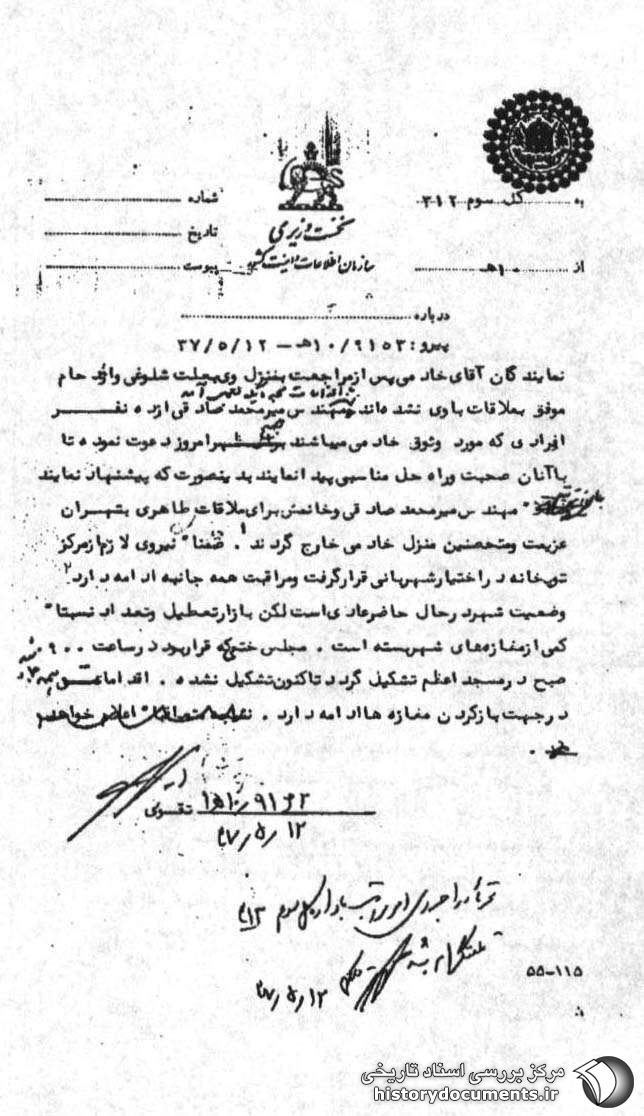 به کل سوم ۳۱۲
شماره
نخست وزیری
تاریخ
سازمان اطلاعات و امنیت کشور
از ۱۰هـ
پیوست
درباره
پیرو: ۱۰/۹۱۵۳هـ – ۳۷/۵/۱۲
نمایندگان آقای خادمی پس از مراجعت بمنزل وی بعلت شلوغی وازدحام
موفق بملاقات باوی نشده اند مهندس میرمحمد صادقی از ده نفر
افرادی که مورد وثوق خادمی میباشند امروز دعوت نموده تا
باآنان صحبت وراه حل مناسبی پیدا نمایند بدینصورت که پیشنهاد نمایند
مهندس میرمحمد صادقی وخانمش برای ملاقات طاهری بتهران
عزیمت ومتحصنین منزل خادمی خارج گردند . ضمنا" نیروی لازم از مرکز
توپخانه در اختیار شهربانی قرار گرفت ومراقبت همه جانبه ادامه دارد
وضعیت شهر در حال حاضر عادی است لکن بازار تعطیل وتعداد نسبتا"
کمی از مغازه های شهر بسته است . مجلس ختمی که قرار بود در ساعت ۹۰۰
صبح در مسجد اعظم تشکیل گردد تاکنون تشکیل نشده . اقدامات
در جهت باز کردن مغازه ها ادامه دارد . اعلام خواهد
شد .
تقوی ۹۱۶۲/۱۰هـ
۳۷/۵/۱۲
۳۷/۵/۱۲
۵۵–۱۱۵
مرکز بررسی اسناد تاریخی
historydocuments.ir